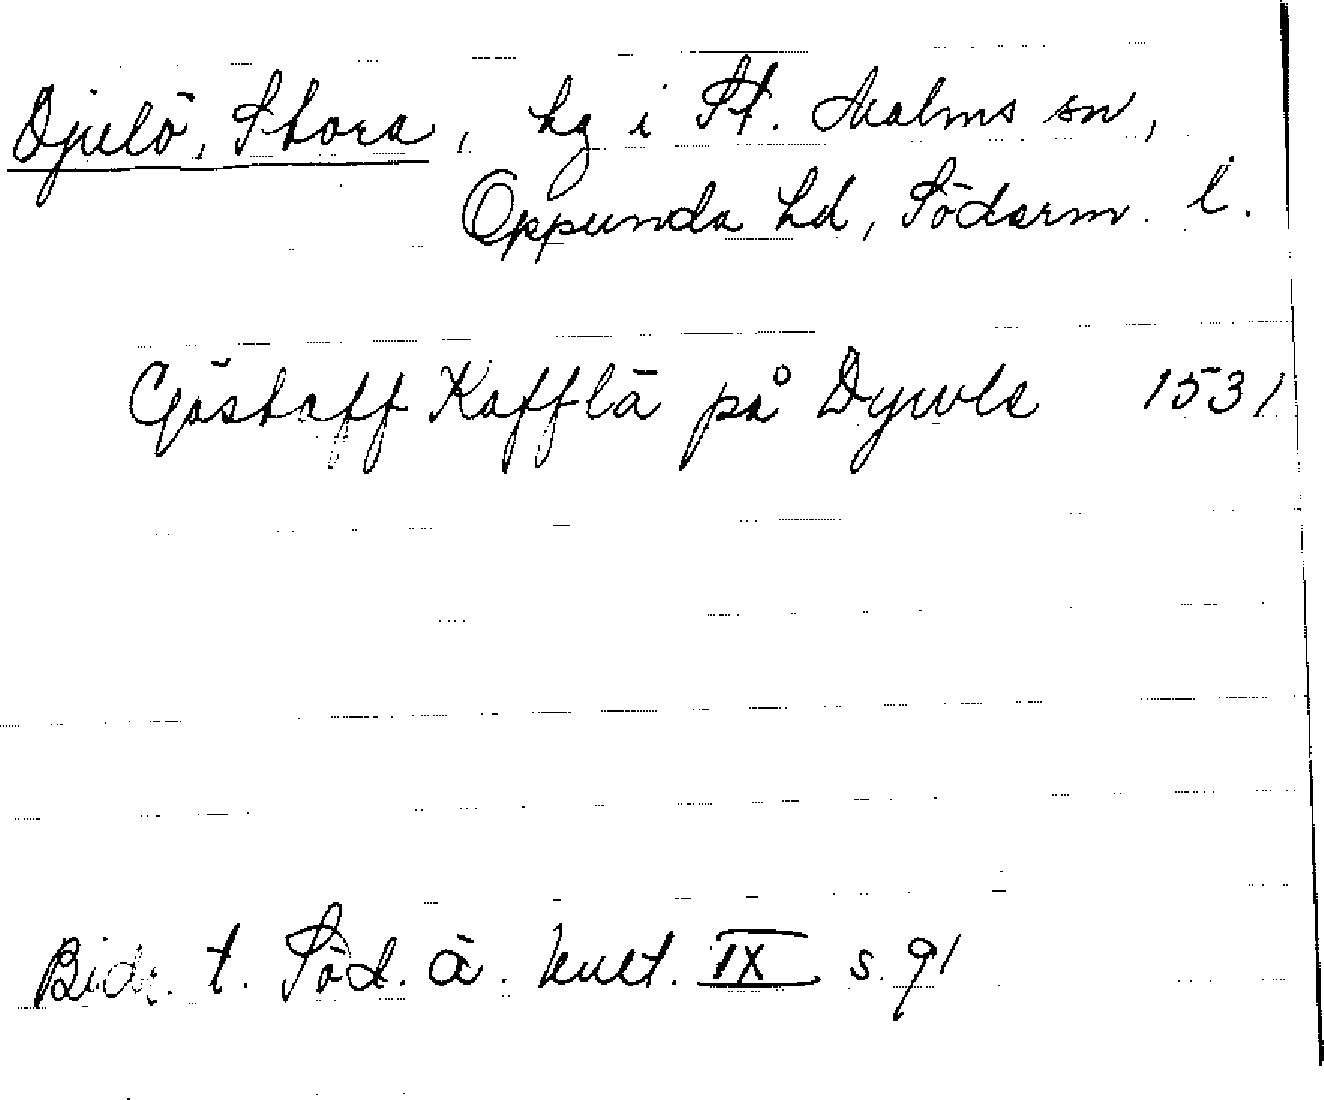 Djulö, Stora, hg i St. Malms sn,
Oppunda hd, Söderm. l.
Göstaff Kafflä på Dywle 1531
Bidr. t. Söd. ä. kult. IX s. 91